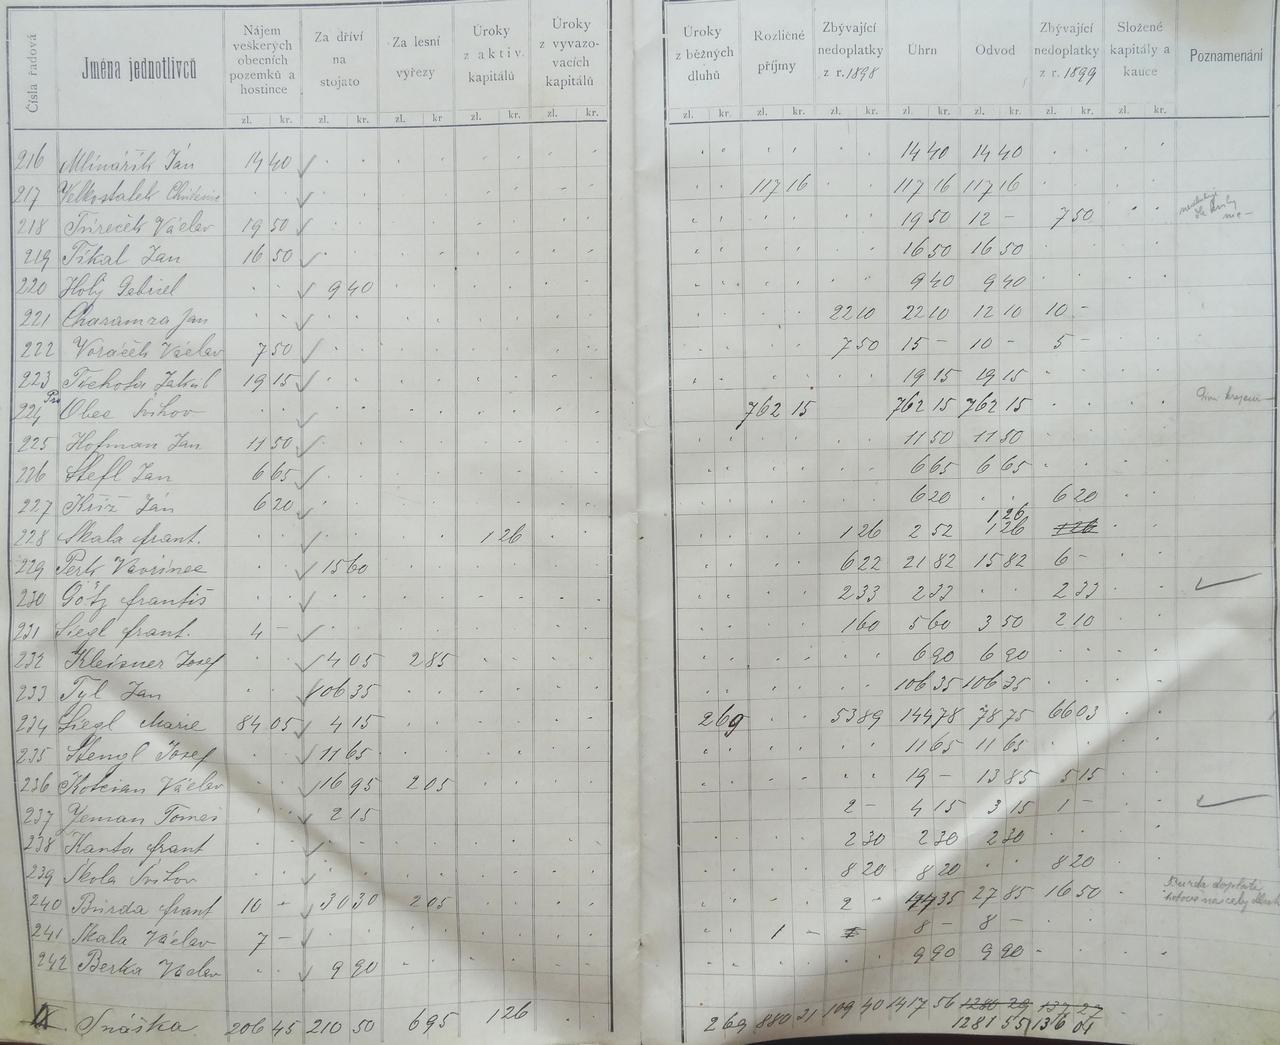 Čísla řadová | Jména jednotlivců | Nájem veškerých obecních pozemků a hostince | Za dříví na stojato | Za lesní vyřezy | Úroky z aktiv. kapitálů | Úroky z vyvazovacích kapitálů | Úroky z běžných dluhů | Rozličné příjmy | Zbývající nedoplatky z r. 1898 | Úhrn | Odvod | Zbývající nedoplatky z r. 1899 | Složené kapitály a kauce | Poznamenání
zl. kr. zl. kr. zl. kr zl. kr. zl. kr. zl. kr. zl. kr. zl. kr. zl. kr. zl. kr. zl. kr. zl. kr.
216 Mlinářík Ján 14 40 14 40 14 40
217 Velkostatek 117 16 117 16 117 16
218 Václav 19 50 19 50 12 - 7 50
219 Tikal Jan 16 50 16 50 16 50
220 Holý Gabriel 9 40 9 40 9 40
221 Charamza Jan 22 10 22 10 12 10 10 -
222 Voráček Václav 7 50 7 50 15 - 10 - 5 -
223 Techota Jakub 19 15 19 15 19 15
224 Obec Švihov 762 15 762 15 762 15
225 Hofman Jan 11 50 11 50 11 50
226 Štefl Jan 6 65 6 65 6 65
227 Kříž Ján 6 20 6 20 6 20
228 Skala frant. 1 26 1 26 2 52 1 26 1 26 1 26
229 Perk Vavřinec 15 60 6 22 21 82 15 82 6 -
230 Götz františ 2 33 2 33 2 33
231 Siegl frant. 4 - 1 60 5 60 3 50 2 10
232 Kleisner Josef 4 05 2 85 6 90 6 90
233 Tyl Jan 106 35 106 35 106 35
234 Siegl Marie 84 05 4 15 2 69 53 89 144 78 78 75 66 03
235 Stengl Josef 11 65 11 65 11 65
236 Kotcian Václav 16 95 2 05 19 - 13 85 5 15
237 Jeman Tomáš 2 15 2 - 4 15 3 15 1 -
238 Kanta frant 2 30 2 30 2 30
239 Škola Švihov 8 20 8 20 8 20
240 Burda frant 10 - 30 30 2 05 2 - 44 35 27 85 16 50 Burda doplatí
241 Skala Václav 7 - 1 - 8 - 8 -
242 Berka Václav 9 90 9 90 9 90
IX Snáška 206 45 210 50 6 95 1 26 2 69 880 31 109 40 1417 56 1280 29 137 27
1281 55 136 01